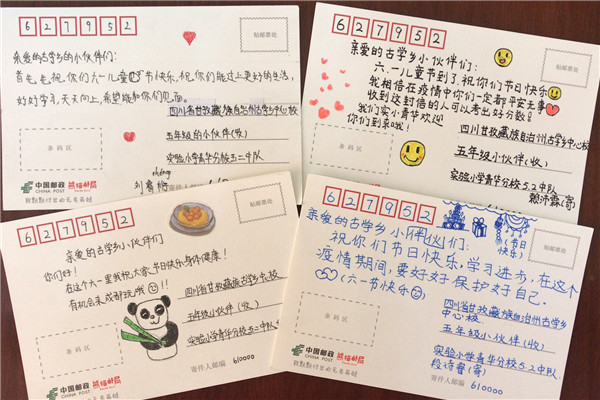 6 2 7 9 5 2
贴邮票处
亲爱的古学乡的小伙伴们:
首先,祝你们六一儿童节快乐,祝你们能过上更好的生活,
好好学习,天天向上,希望能和你们见面。
四川省甘孜藏族自治州古学乡中心校
五年级的小伙伴(收)
实验小学青华分校五二中队
条码区
中国邮政
CHINA POST
熊猫邮局
致默默付出的无名英雄
6 2 7 9 5 2
贴邮票处
亲爱的古学乡小伙伴们:
六、一儿童节到了,祝你们节日快乐
我相信在疫情中你们一定都平安无事
收到这封信的人可以考出好分数!
我们实小青华欢迎
你们到来哦!
四川省甘孜藏族自治州古学乡中心校
五年级小伙伴(收)
实验小学青华分校5.2中队
条码区
6 2 7 9 5 2
贴邮票处
亲爱的古学乡小伙伴们
你们好!
在这个六一里我祝大家节日快乐,身体健康!
有机会来成都玩哦!!
四川省甘孜藏族自治州古学乡中心校
五年级小伙伴(收)
实验小学青华分校五二中队
条码区
中国邮政
CHINA POST
熊猫邮局
寄件人邮编 610000
致默默付出的无名英雄
6 2 7 9 5 2
贴邮票处
亲爱的古学乡小伙伴们:
(节日快乐)
祝你们节日快乐,学习进步,在这个
疫情期间,要好好保护好自己.
(六一节快乐)
四川省甘孜藏族自治州古学乡
中心校
五年级小伙伴(收)
实验小学青华分校5.2中队
段诗睿(寄)
条码区
中国邮政
CHINA POST
熊猫邮局
寄件人邮编 610000
致默默付出的无名英雄